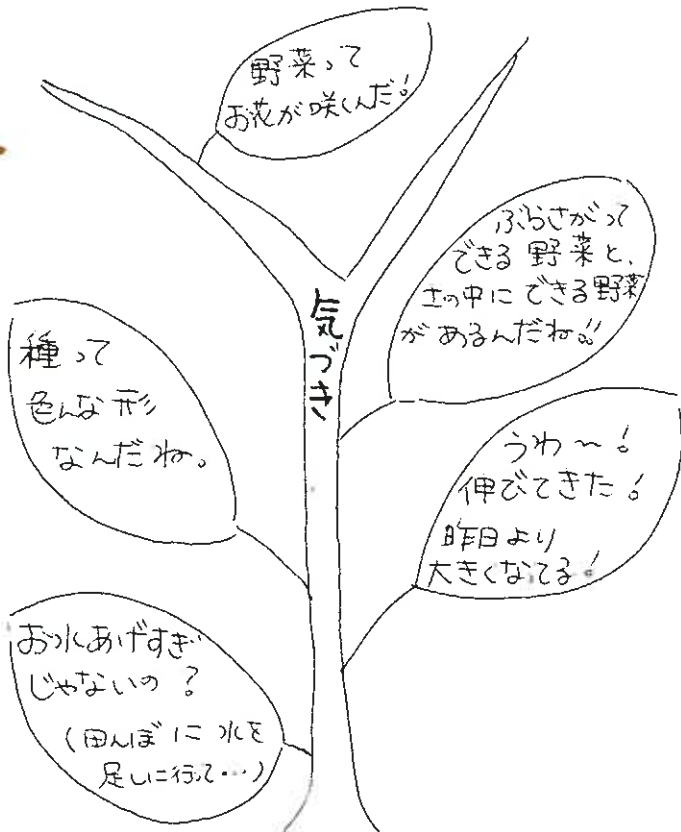 野菜って
お花が咲くんだ!
ぶらさがって
できる野菜と、
土の中にできる野菜
があるんだね!!
気づき
種って
色んな形
なんだね。
うわ~!
伸びてきた!
昨日より
大きくなてる!
お水あげすぎ
じゃないの?
(田んぼに水を
足しに行って…)